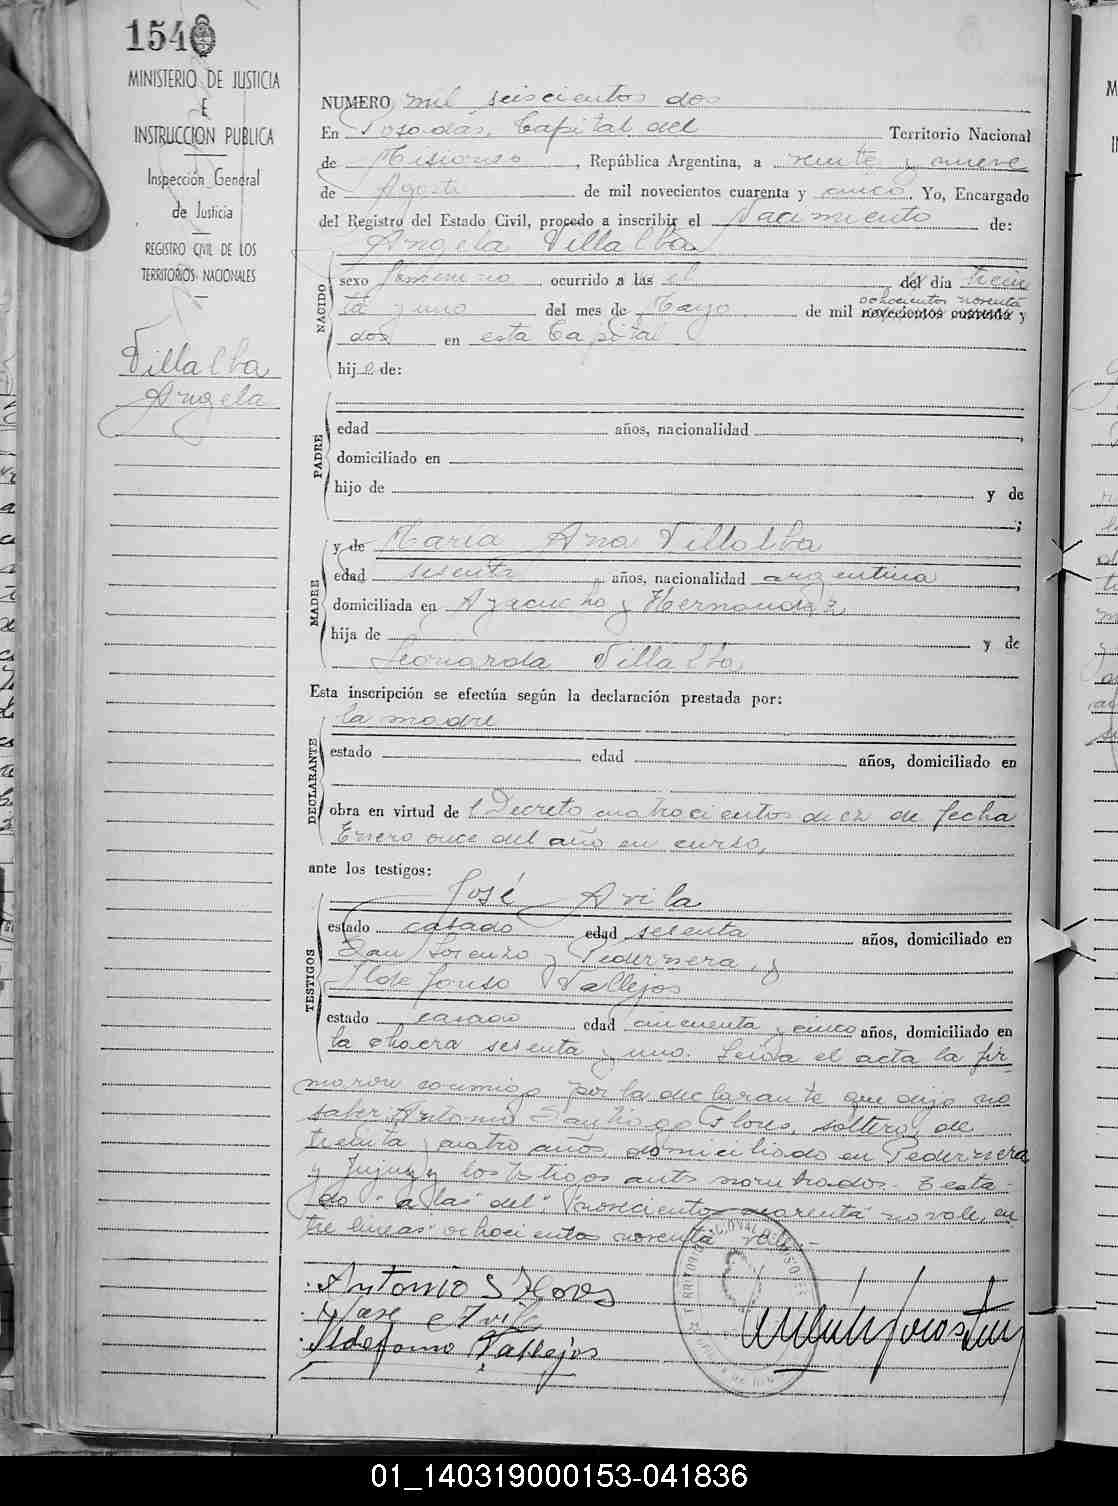 1540
MINISTERIO DE JUSTICIA
E
INSTRUCCION PUBLICA
Inspección General
de Justicia
REGISTRO CIVIL DE LOS
TERRITORIOS NACIONALES
Villalba
Angela
NUMERO mil seiscientos dos
En Posadas, Capital del Territorio Nacional
de Misiones, República Argentina, a veinte y nueve
de Agosto de mil novecientos cuarenta y cinco, Yo, Encargado
del Registro del Estado Civil, procedo a inscribir el Nacimiento de:
Angela Villalba
NACIDO
sexo femenino ocurrido a las el del día trein
ta y uno del mes de Mayo de mil novecientos cuarenta y
ochocientos noventa
dos en esta Capital
hija de:
PADRE
edad años, nacionalidad
domiciliado en
hijo de y de
;
MADRE
y de María Ana Villalba
edad sesenta años, nacionalidad argentina
domiciliada en Ayacucho y Hernandez
hija de y de
Leonarda Villalba
Esta inscripción se efectúa según la declaración prestada por:
la madre
DECLARANTE
estado edad años, domiciliado en
obra en virtud de l Decreto cuatrocientos diez de fecha
Enero once del año en curso,
ante los testigos:
José Avila
TESTIGOS
estado casado edad sesenta años, domiciliado en
San Lorenzo y Pedernera, y
Ildefonso Vallejos
estado casado edad cincuenta y cinco años, domiciliado en
la chacra sesenta y uno. Leída el acta la fir
maron conmigo por la declarante que dijo no
saber Antonio Santiago Flores, soltero, de
treinta y cuatro años, domiciliado en Pedernera
y Jujuy y los testigos ante nombrados. Testa-
do "a las" del", "novecientos cuarenta" no vale, en
tre lineas: ochocientos noventa vale.-
Antonio S Flores
Jose Avila
Ildefonso Vallejos
01_140319000153-041836